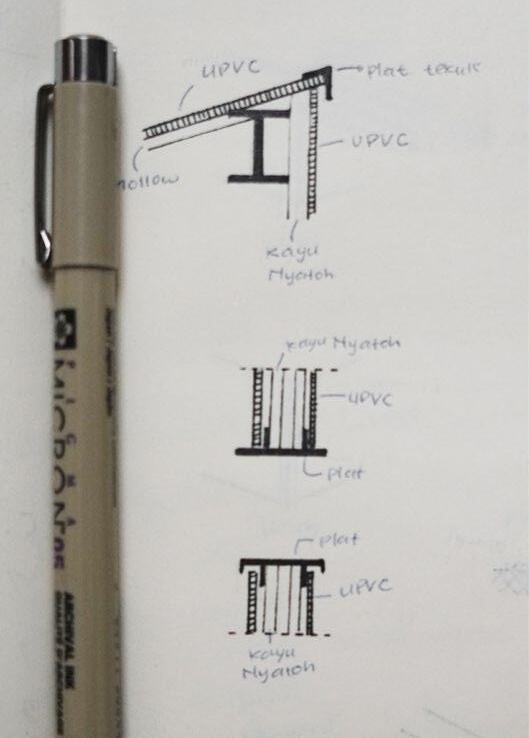 UPVC
plat tekuk
UPVC
hollow
kayu
Nyatoh
kayu Nyatoh
UPVC
plat
plat
UPVC
kayu
Nyatoh
PIGMA
MICRON
05
ARCHIVAL INK
QUALITÉ D'ARCHIVAGE